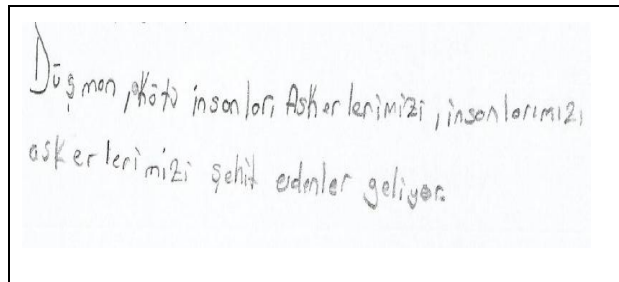 Düşman, kötü insanlar, Askerlerimizi, insanlarımızı
askerlerimizi şehit edenler geliyor.